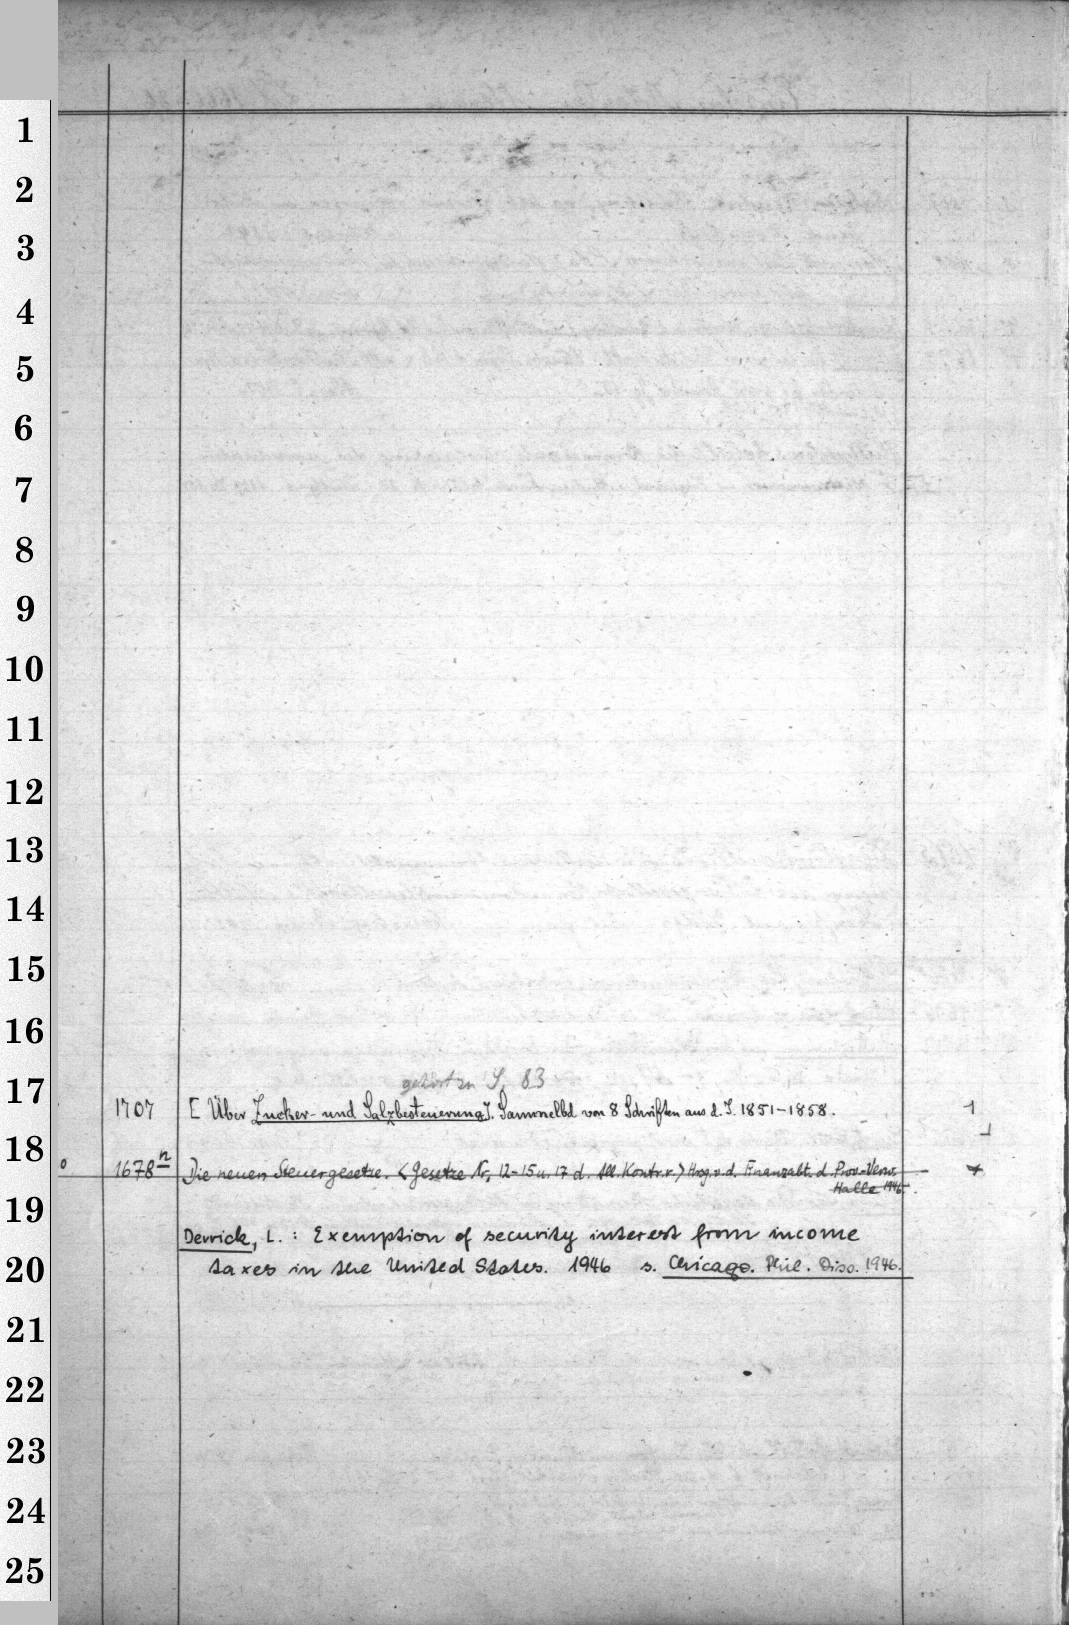 1
2
3
4
5
6
7
8
9
10
11
12
13
14
15
16
17
gehört zu S. 83
1707 [Über Zucker- und Salzbesteuerung]. Sammelbd von 8 Schriften aus d. J. 1851-1858. 1
18
o 1678 n Die neuen Steuergesetze. <Gesetze Nr. 12-15 u. 17 d. All. Kontr.r.> Hrsg. v. d. Finanzabt. d. Prov.-Verw.
Halle 1946.
19
Derrick, L.: Exemption of security interest from income
20
taxes in the United States. 1946 s. Chicago. Phil. Diss. 1946.
21
22
23
24
25